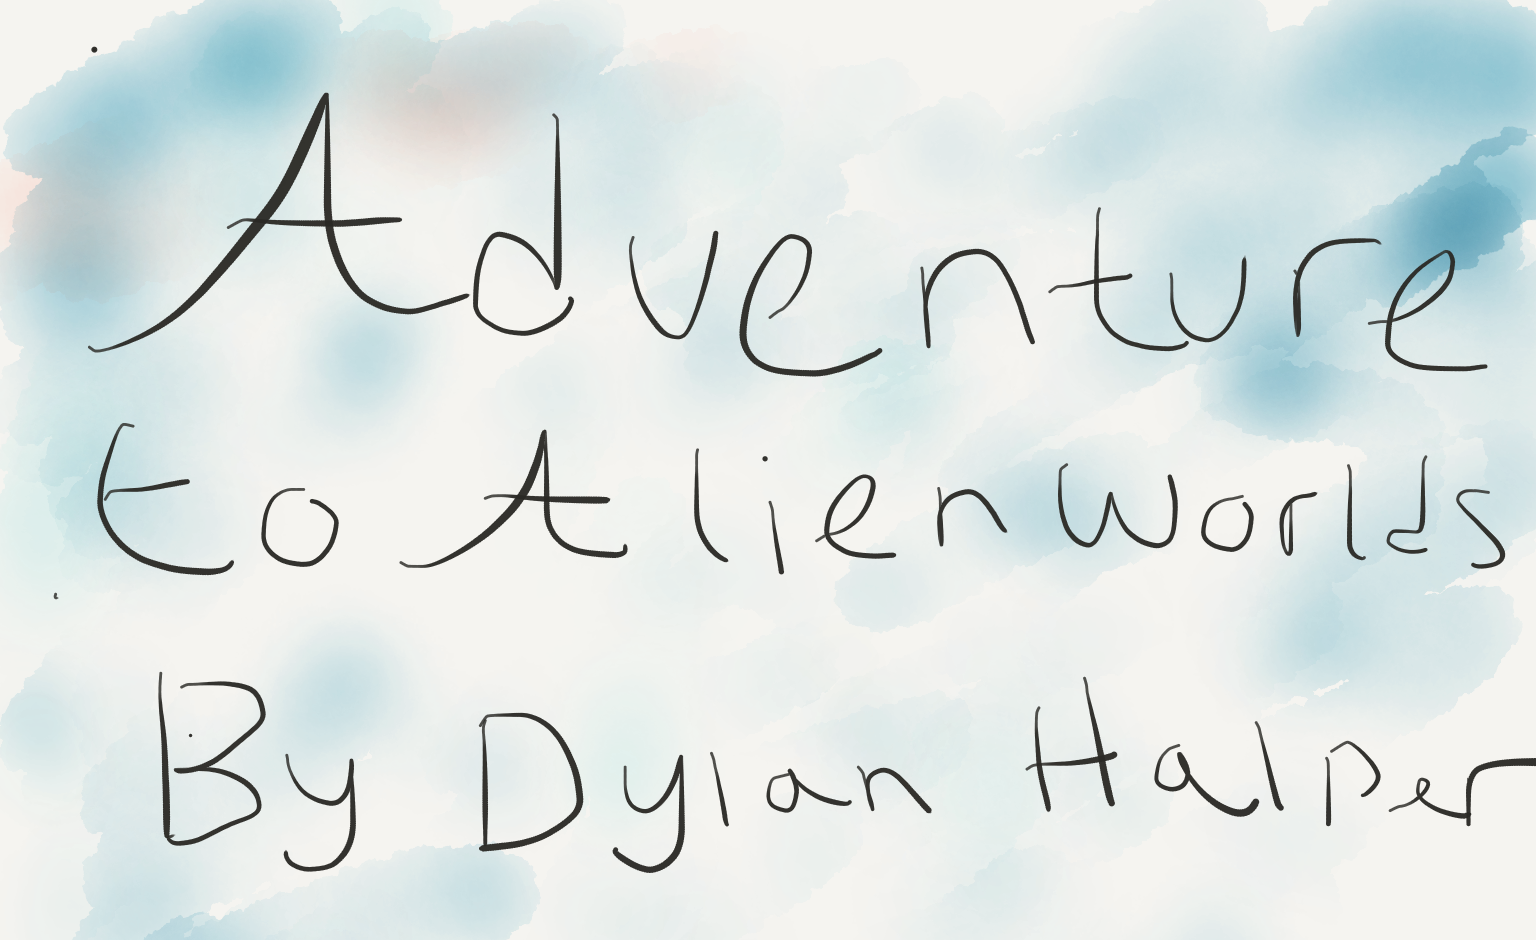 Adventure
to Alien Worlds
By Dylan Halper